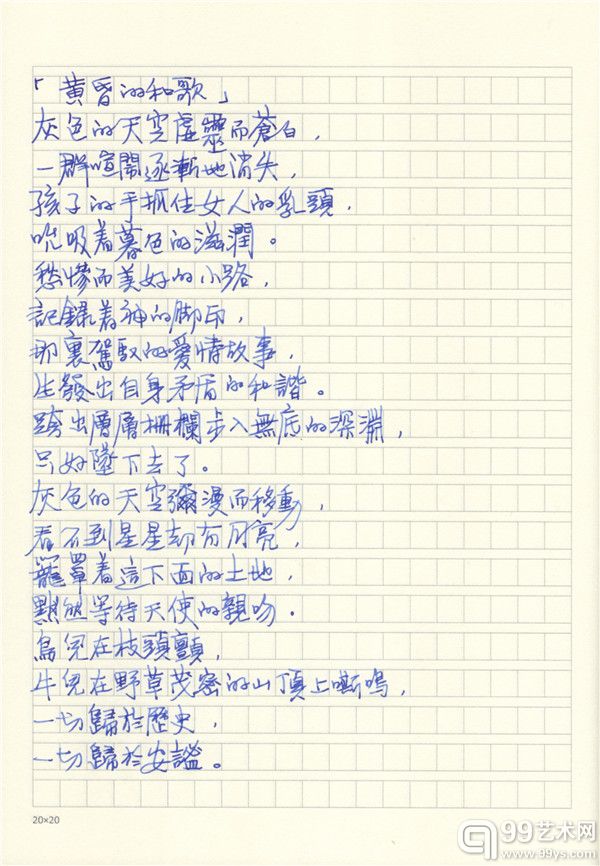 「黄昏的和歌」
灰色的天空虛靈而蒼白，
一群喧鬧逐漸地消失，
孩子的手抓住女人的乳頭，
吮吸着暮色的滋潤。
愁慘而美好的小路，
記錄着神的脚印，
那裏駕馭的愛情故事，
生發出自身矛盾的和諧。
跨出層層柵欄步入無底的深淵，
只好墜下去了。
灰色的天空彌漫而移動，
看不到星星却有月亮，
籠罩着這下面的土地，
默然等待天使的親吻。
鳥兒在枝頭顫，
牛兒在野草茂密的山頂上嘶鳴，
一切歸於歷史，
一切歸於安謐。
20×20
99艺术网
www.99ys.com